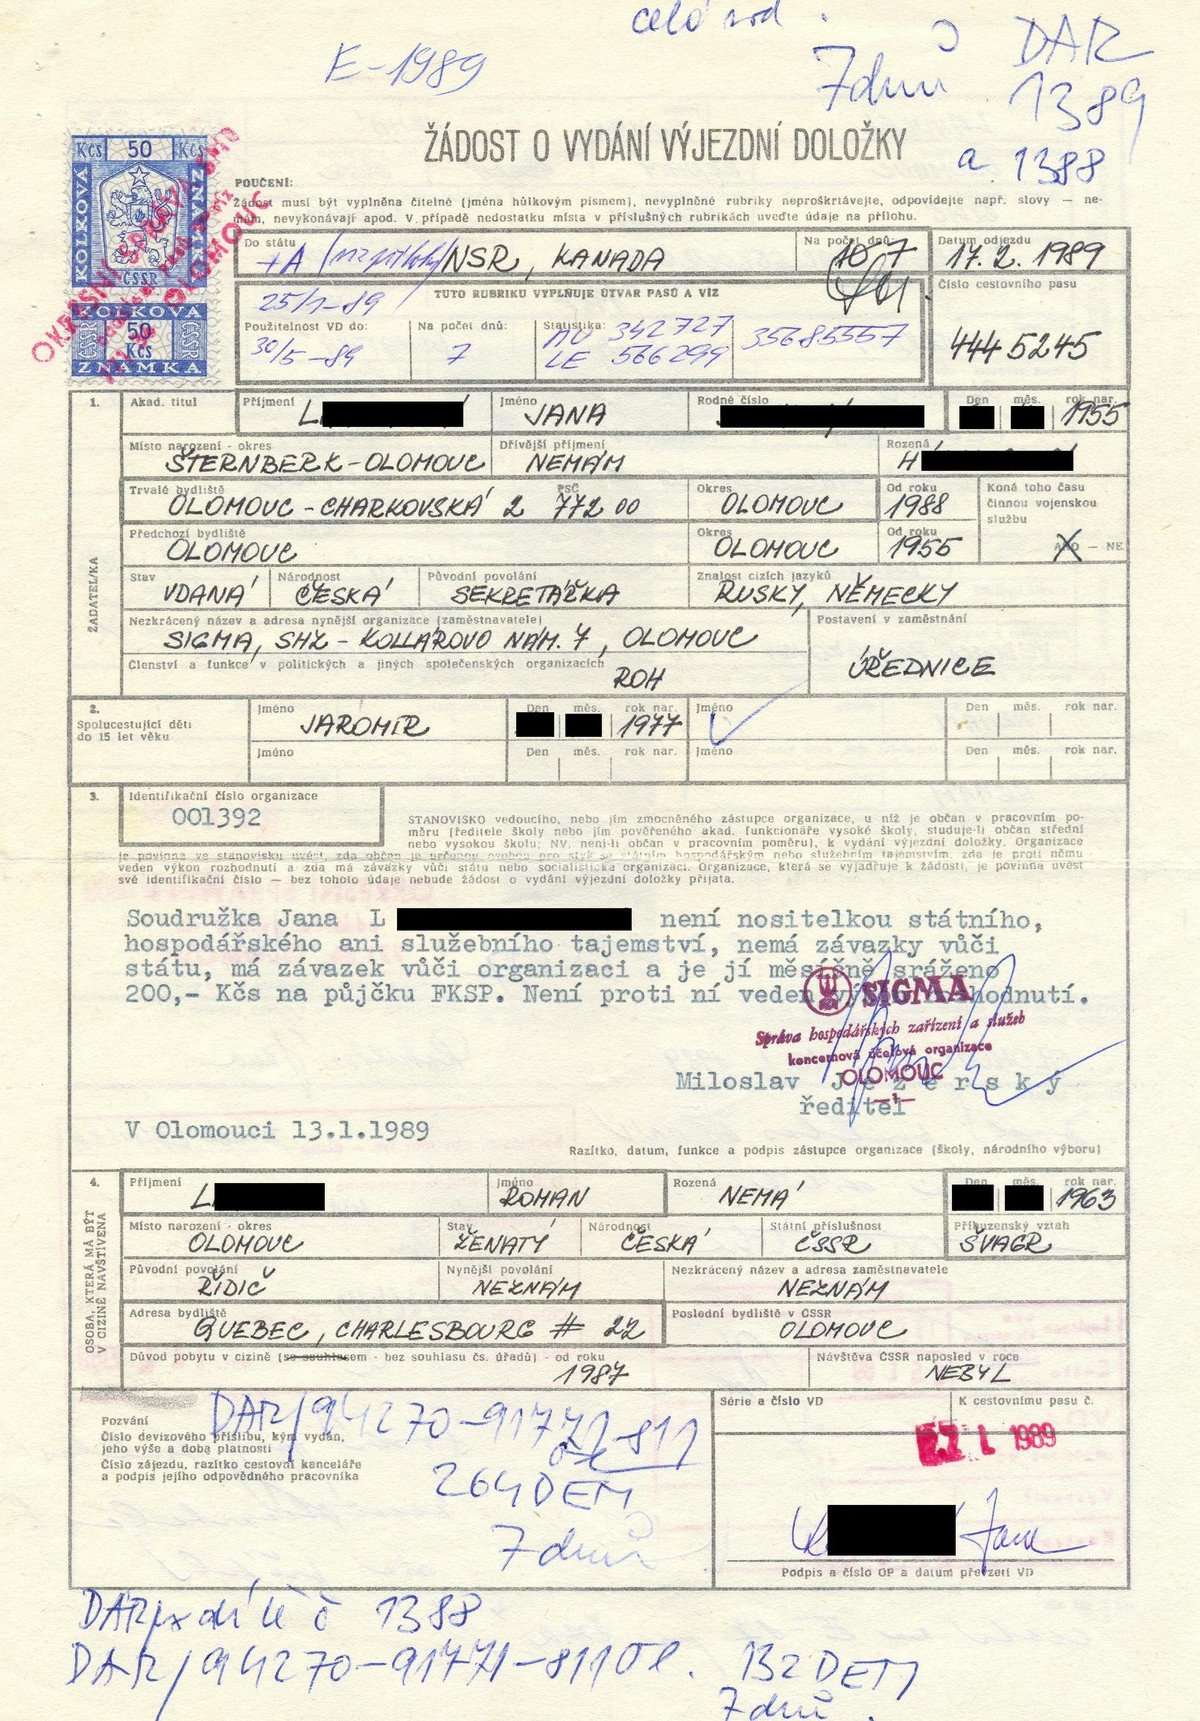 celá rod.
E-1989
7 dnů
DAR
1389
a 1388
ŽÁDOST O VYDÁNÍ VÝJEZDNÍ DOLOŽKY
Kčs 50 Kčs
KOLKOVÁ
ZNÁMKA
ČSSR
KOLKOVÁ
ČSSR 50 Kčs ČSSR
ZNÁMKA
OLOMOUC
POUČENÍ:
Žádost musí být vyplněna čitelně (jména hůlkovým písmem), nevyplněné rubriky neproškrtávejte, odpovídejte např. slovy — ne-
mám, nevykonávají apod. V případě nedostatku místa v příslušných rubrikách uveďte údaje na přílohu.
Do státu
+A NSR, KANADA
Na počet dnů:
7
Datum odjezdu
17. 2. 1989
TUTO RUBRIKU VYPLŇUJE ÚTVAR PASŮ A VÍZ
25/1-89
Číslo cestovního pasu
4445245
Použitelnost VD do:
30/5-89
Na počet dnů:
7
Statistika:
AU 342727
LE 566299
35685557
1.
ŽADATEL/KA
Akad. titul
Příjmení
L
Jméno
JANA
Rodné číslo
Den měs. rok nar.
1955
Místo narození - okres
ŠTERNBERK-OLOMOUC
Dřívější příjmení
NEMÁM
Rozená
H
Trvalé bydliště PSČ
OLOMOUC - CHARKOVSKÁ 2 772 00
Okres
OLOMOUC
Od roku
1988
Koná toho času
činnou vojenskou
službu
ANO — NE
Předchozí bydliště
OLOMOUC
Okres
OLOMOUC
Od roku
1955
Stav
VDANÁ
Národnost
ČESKÁ
Původní povolání
SEKRETÁŘKA
Znalost cizích jazyků
RUSKY, NĚMECKY
Nezkrácený název a adresa nynější organizace (zaměstnavatele)
SIGMA, SHZ - KOLLÁROVO NÁM. 7, OLOMOUC
Postavení v zaměstnání
ÚŘEDNICE
Členství a funkce v politických a jiných společenských organizacích
ROH
2.
Spolucestující děti
do 15 let věku
Jméno
JAROMÍR
Den měs. rok nar.
1977
Jméno
Den měs. rok nar.
Jméno
Den měs. rok nar.
Jméno
Den měs. rok nar.
3.
Identifikační číslo organizace
001392
STANOVISKO vedoucího, nebo jím zmocněného zástupce organizace, u níž je občan v pracovním po-
měru (ředitele školy nebo jím pověřeného akad. funkcionáře vysoké školy, studuje-li občan střední
nebo vysokou školu; NV, není-li občan v pracovním poměru), k vydání výjezdní doložky. Organizace
je povinna ve stanovisku uvést, zda občan je určenou osobou pro styk se státním hospodářským nebo služebním tajemstvím, zda je proti němu
veden výkon rozhodnutí a zda má závazky vůči státu nebo socialistické organizaci. Organizace, která se vyjadřuje k žádosti, je povinna uvést
své identifikační číslo — bez tohoto údaje nebude žádost o vydání výjezdní doložky přijata.
Soudružka Jana L není nositelkou státního,
hospodářského ani služebního tajemství, nemá závazky vůči
státu, má závazek vůči organizaci a je jí měsíčně sráženo
200,- Kčs na půjčku FKSP. Není proti ní veden výkon rozhodnutí.
SIGMA
Správa hospodářských zařízení a služeb
koncernová účelová organizace
OLOMOUC
-1-
Miloslav Jezerský
ředitel
V Olomouci 13.1.1989
Razítko, datum, funkce a podpis zástupce organizace (školy, národního výboru)
4.
OSOBA, KTERÁ MÁ BÝT
V CIZINĚ NAVŠTÍVENA
Příjmení
L
Jméno
ROMAN
Rozená
NEMÁ
Den měs. rok nar.
1963
Místo narození - okres
OLOMOUC
Stav
ŽENATÝ
Národnost
ČESKÁ
Státní příslušnost
ČSSR
Příbuzenský vztah
ŠVAGR
Původní povolání
ŘIDIČ
Nynější povolání
NEZNÁM
Nezkrácený název a adresa zaměstnavatele
NEZNÁM
Adresa bydliště
QUEBEC, CHARLESBOURG # 22
Poslední bydliště v ČSSR
OLOMOUC
Důvod pobytu v cizině (se souhlasem - bez souhlasu čs. úřadů) - od roku
1987
Návštěva ČSSR naposled v roce
NEBYL
Pozvání
Číslo devizového příslibu, kým vydán,
jeho výše a doba platnosti
Číslo zájezdu, razítko cestovní kanceláře
a podpis jejího odpovědného pracovníka
DAR/94270-91771-811
264 DEM
7 dnů
Série a číslo VD
K cestovnímu pasu č.
1989
Jana
Podpis a číslo OP a datum převzetí VD
DAR dítě č 1388
DAR/94270-91771-811 Ol. 132 DEM
7 dnů.